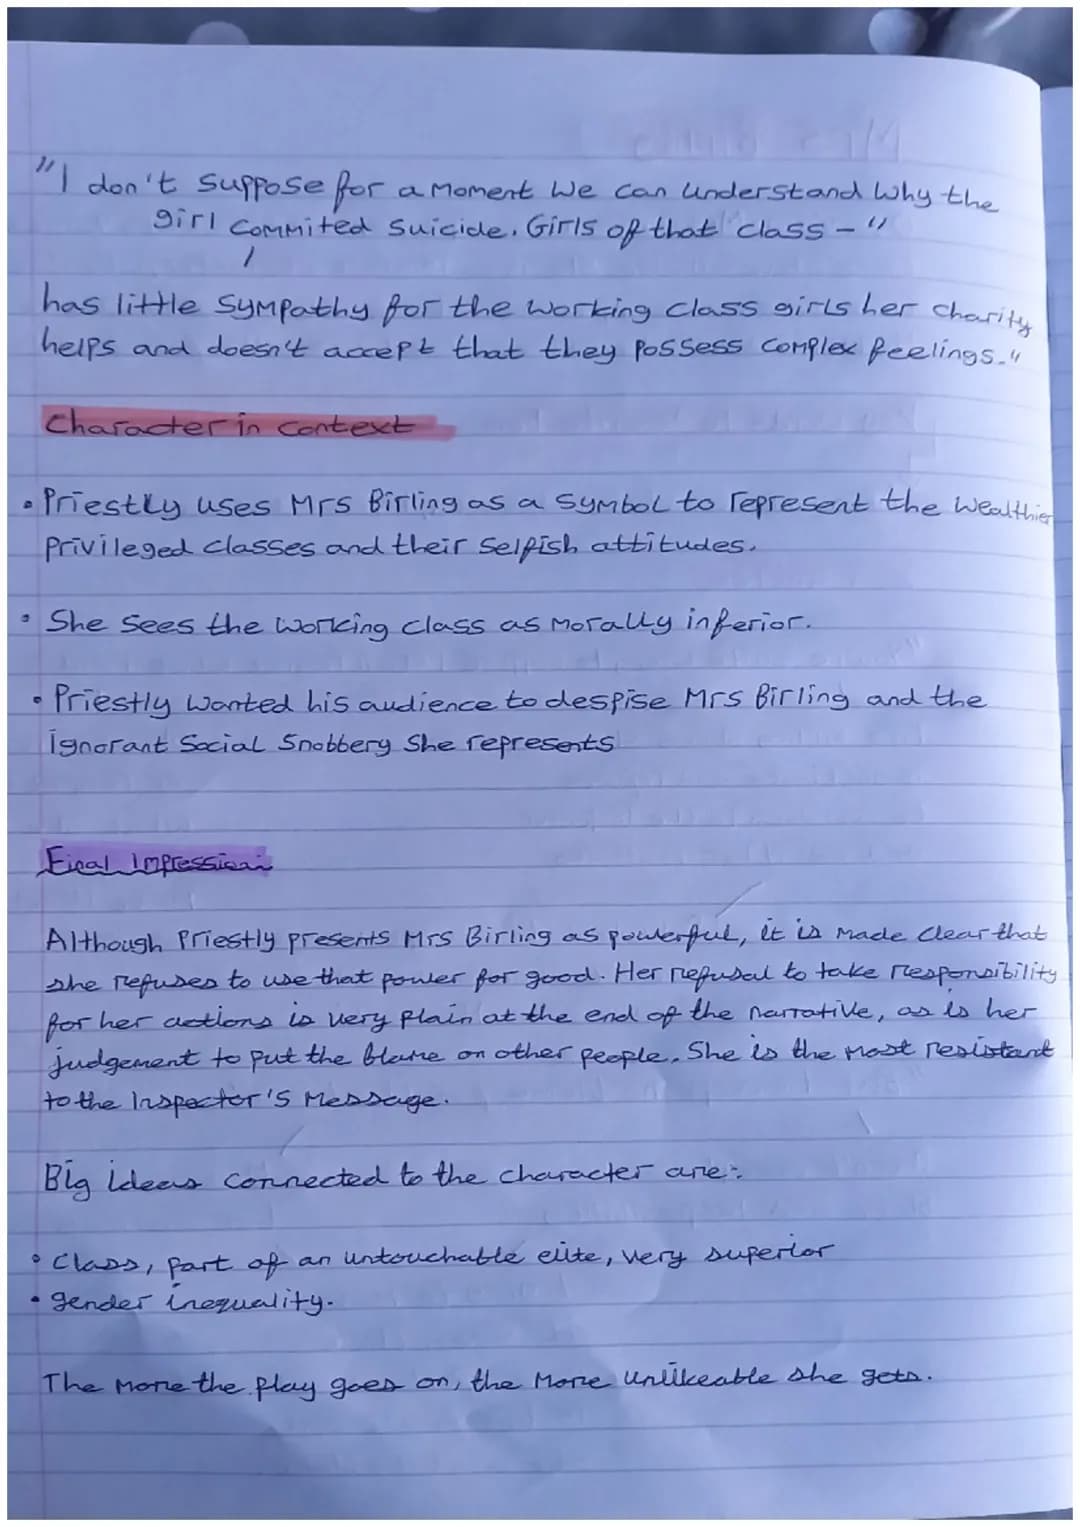 "I don't suppose for a moment we can understand why the
girl commited suicide. Girls of that class - "
has little sympathy for the working class girls her charity
helps and doesn't accept that they possess complex feelings."
Character in context
• Priestly uses Mrs Birling as a symbol to represent the wealthier
privileged classes and their selfish attitudes.
• She sees the working class as morally inferior.
• Priestly wanted his audience to despise Mrs Birling and the
ignorant social snobbery she represents
Final Impression
Although Priestly presents Mrs Birling as powerful, it is made clear that
she refuses to use that power for good. Her refusal to take responsibility
for her actions is very plain at the end of the narrative, as is her
judgement to put the blame on other people. She is the most resistant
to the Inspector's message.
Big ideas connected to the character are:
• Class, part of an untouchable elite, very superior
• gender inequality.
The more the play goes on, the more unlikeable she gets.